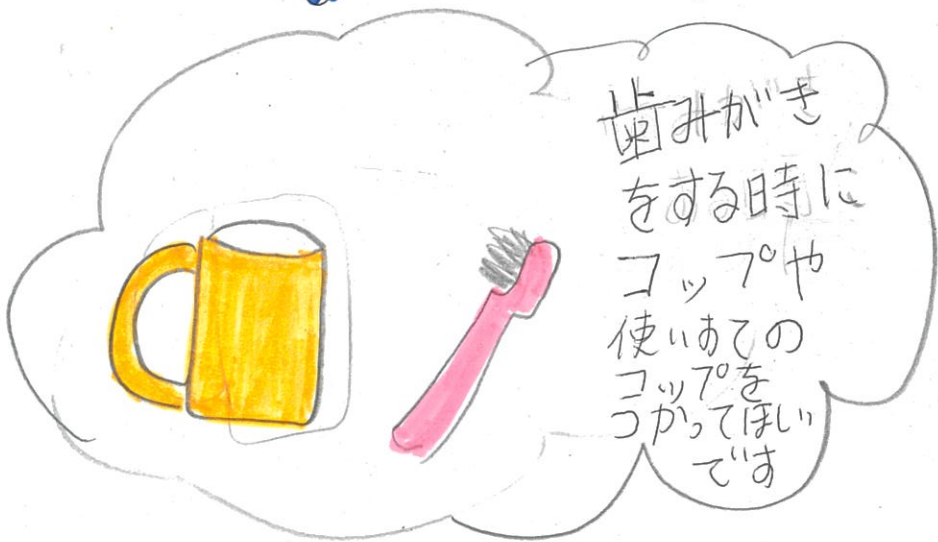 歯みがき
をする時に
コップや
使いすての
コップを
つかってほしい
です